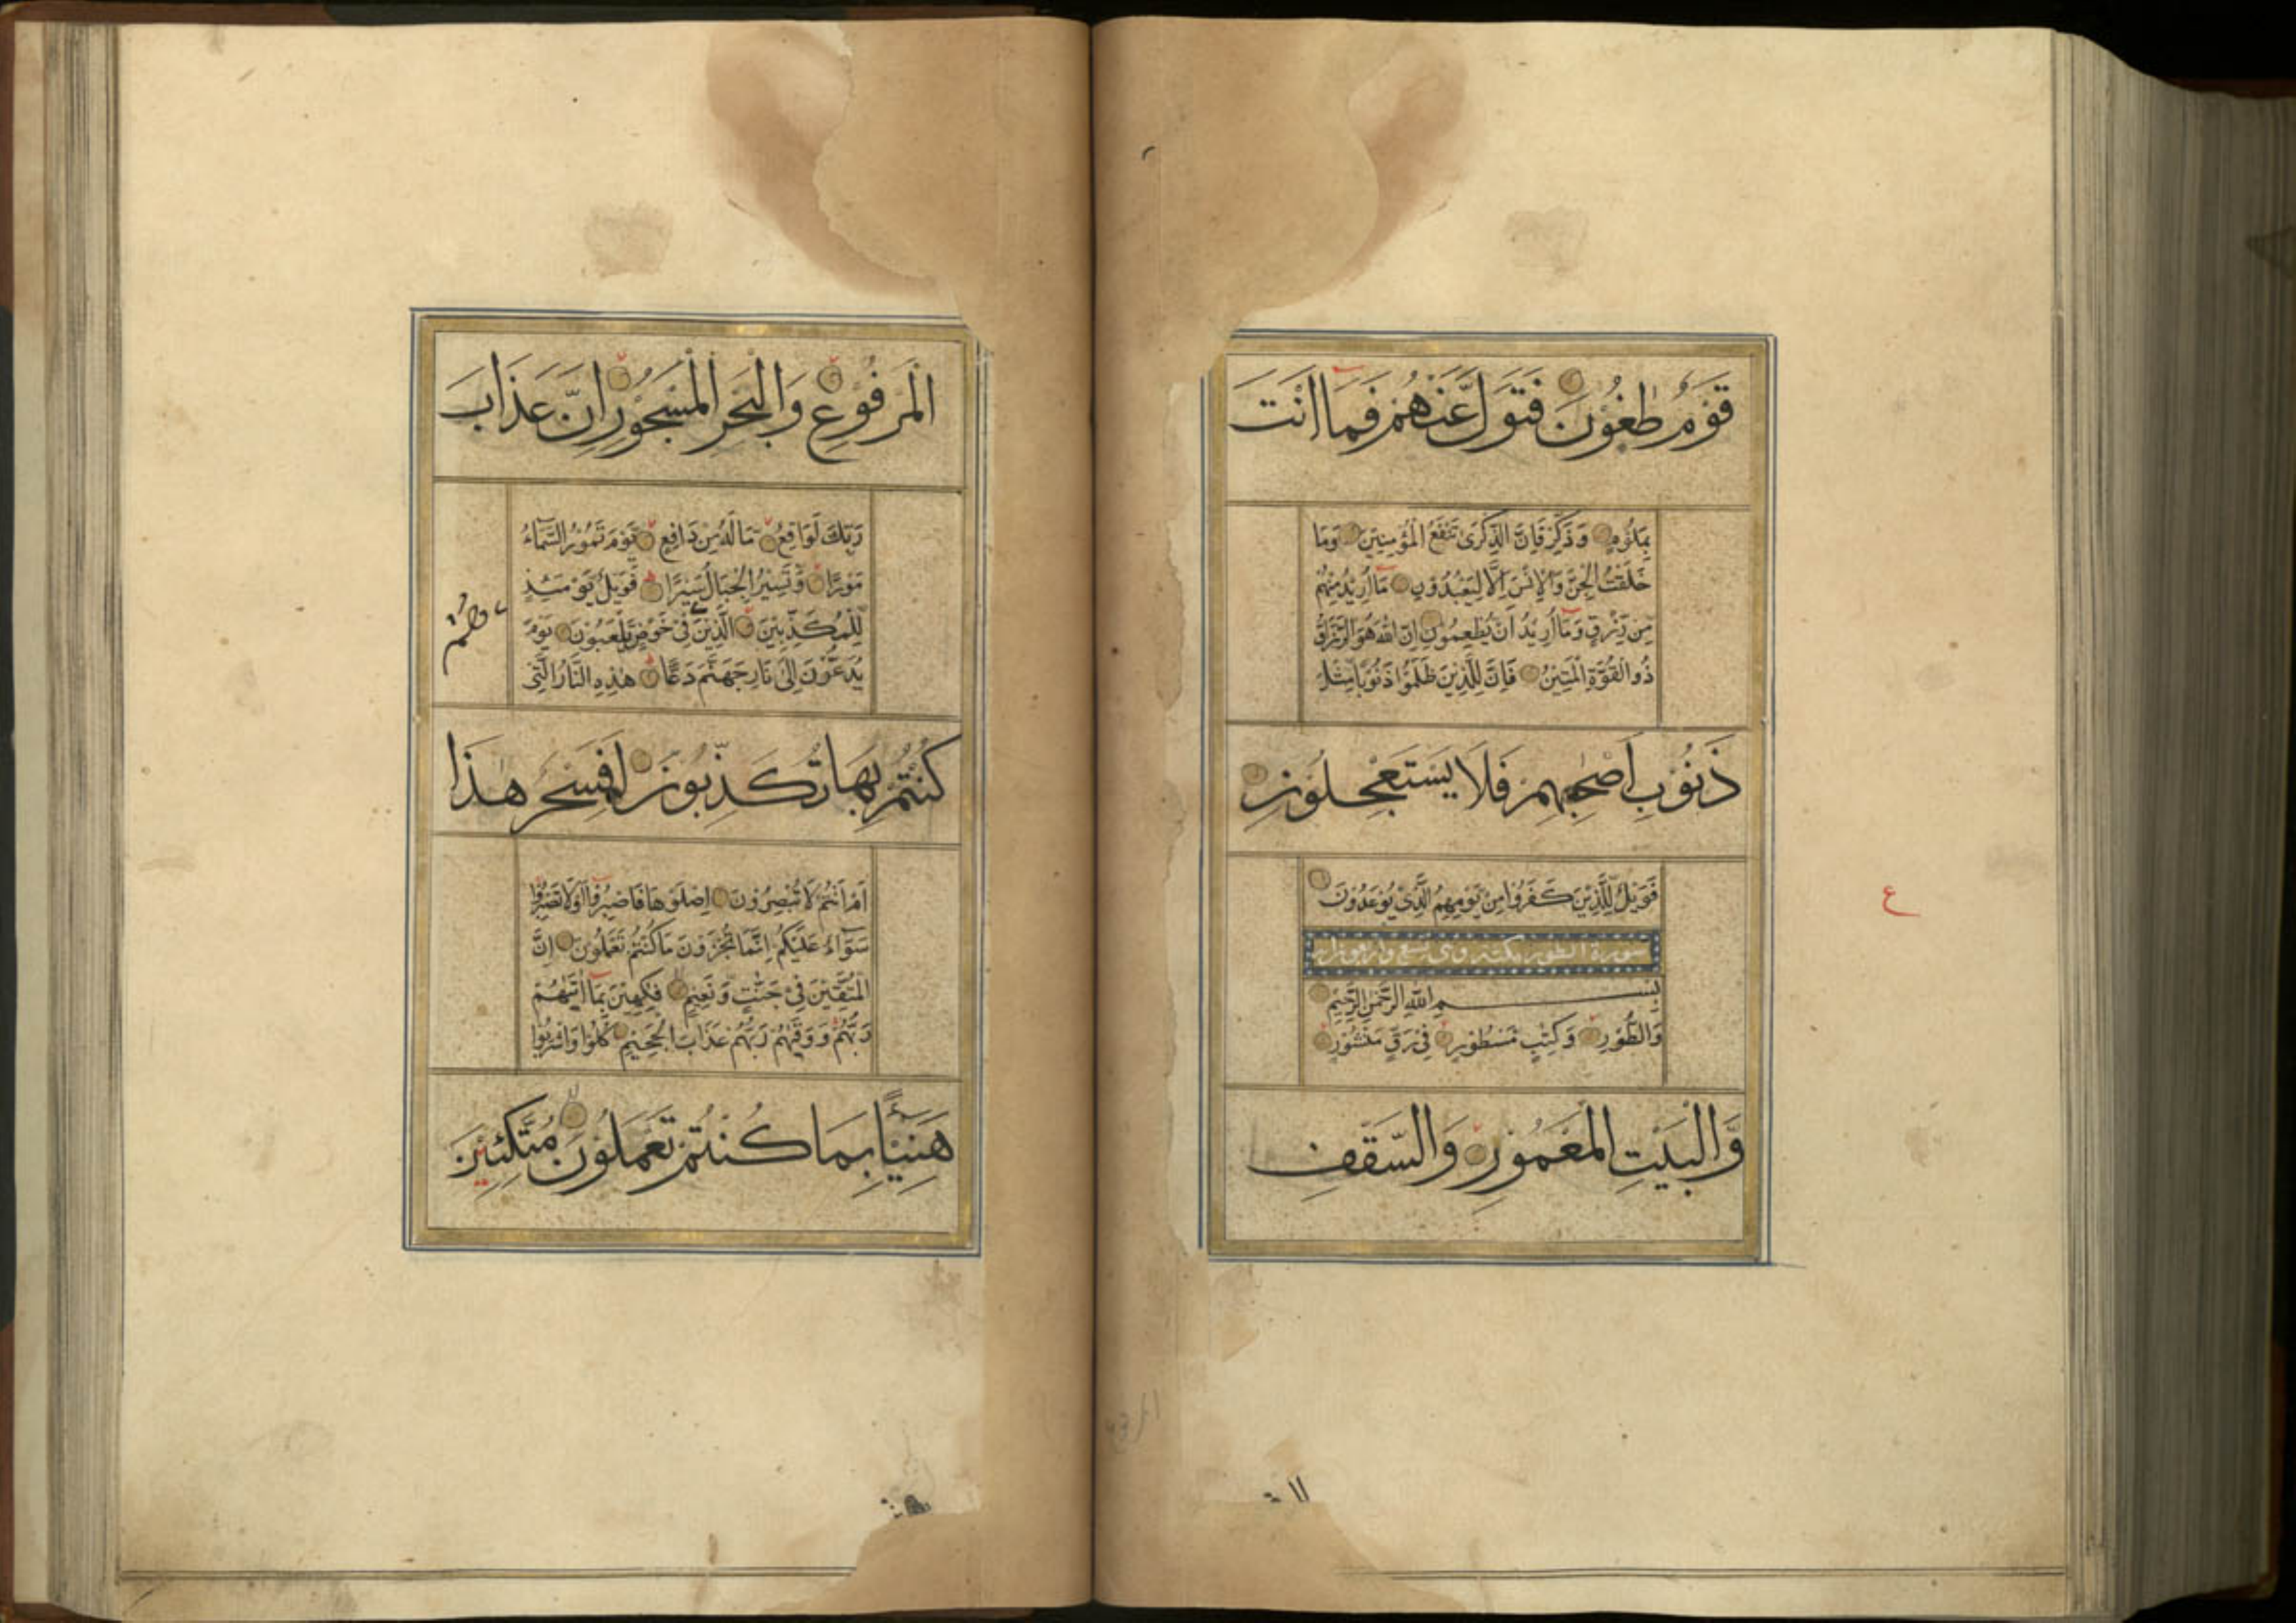 قَوْمٌ طٰغُوْنَ فَتَوَلَّ عَنْهُمْ فَمَا اَنْتَ
بِمَلُوْمٍ وَذَكِّرْ فَاِنَّ الذِّكْرٰى تَنْفَعُ الْمُؤْمِنِيْنَ وَمَا
خَلَقْتُ الْجِنَّ وَالْاِنْسَ اِلَّا لِيَعْبُدُوْنِ مَا اُرِيْدُ مِنْهُمْ
مِنْ رِّزْقٍ وَمَا اُرِيْدُ اَنْ يُّطْعِمُوْنِ اِنَّ اللّٰهَ هُوَ الرَّزَّاقُ
ذُو الْقُوَّةِ الْمَتِيْنُ فَاِنَّ لِلَّذِيْنَ ظَلَمُوْا ذَنُوْبًا مِّثْلَ
ذَنُوْبِ اَصْحٰبِهِمْ فَلَا يَسْتَعْجِلُوْنِ
فَوَيْلٌ لِّلَّذِيْنَ كَفَرُوْا مِنْ يَّوْمِهِمُ الَّذِيْ يُوْعَدُوْنَ
سورة الطور مكية وهى تسع واربعون اية
بِسْمِ اللّٰهِ الرَّحْمٰنِ الرَّحِيْمِ
وَالطُّوْرِ وَكِتٰبٍ مَّسْطُوْرٍ فِيْ رَقٍّ مَّنْشُوْرٍ
وَّالْبَيْتِ الْمَعْمُوْرِ وَالسَّقْفِ
ع
الْمَرْفُوْعِ وَالْبَحْرِ الْمَسْجُوْرِ اِنَّ عَذَابَ
رَبِّكَ لَوَاقِعٌ مَا لَهٗ مِنْ دَافِعٍ يَّوْمَ تَمُوْرُ السَّمَآءُ
مَوْرًا وَّتَسِيْرُ الْجِبَالُ سَيْرًا فَوَيْلٌ يَّوْمَئِذٍ
لِّلْمُكَذِّبِيْنَ الَّذِيْنَ فِيْ خَوْضٍ يَّلْعَبُوْنَ يَوْمَ
يُدَعُّوْنَ اِلٰى نَارِ جَهَنَّمَ دَعًّا هٰذِهِ النَّارُ الَّتِيْ
كُنْتُمْ بِهَا تُكَذِّبُوْنَ اَفَسِحْرٌ هٰذَا
اَمْ اَنْتُمْ لَا تُبْصِرُوْنَ اِصْلَوْهَا فَاصْبِرُوْا اَوْ لَا تَصْبِرُوْا
سَوَآءٌ عَلَيْكُمْ اِنَّمَا تُجْزَوْنَ مَا كُنْتُمْ تَعْمَلُوْنَ اِنَّ
الْمُتَّقِيْنَ فِيْ جَنّٰتٍ وَّنَعِيْمٍ فٰكِهِيْنَ بِمَا اٰتٰهُمْ
رَبُّهُمْ وَوَقٰهُمْ رَبُّهُمْ عَذَابَ الْجَحِيْمِ كُلُوْا وَاشْرَبُوْا
هَنِيْئًا بِمَا كُنْتُمْ تَعْمَلُوْنَ مُتَّكِئِيْنَ